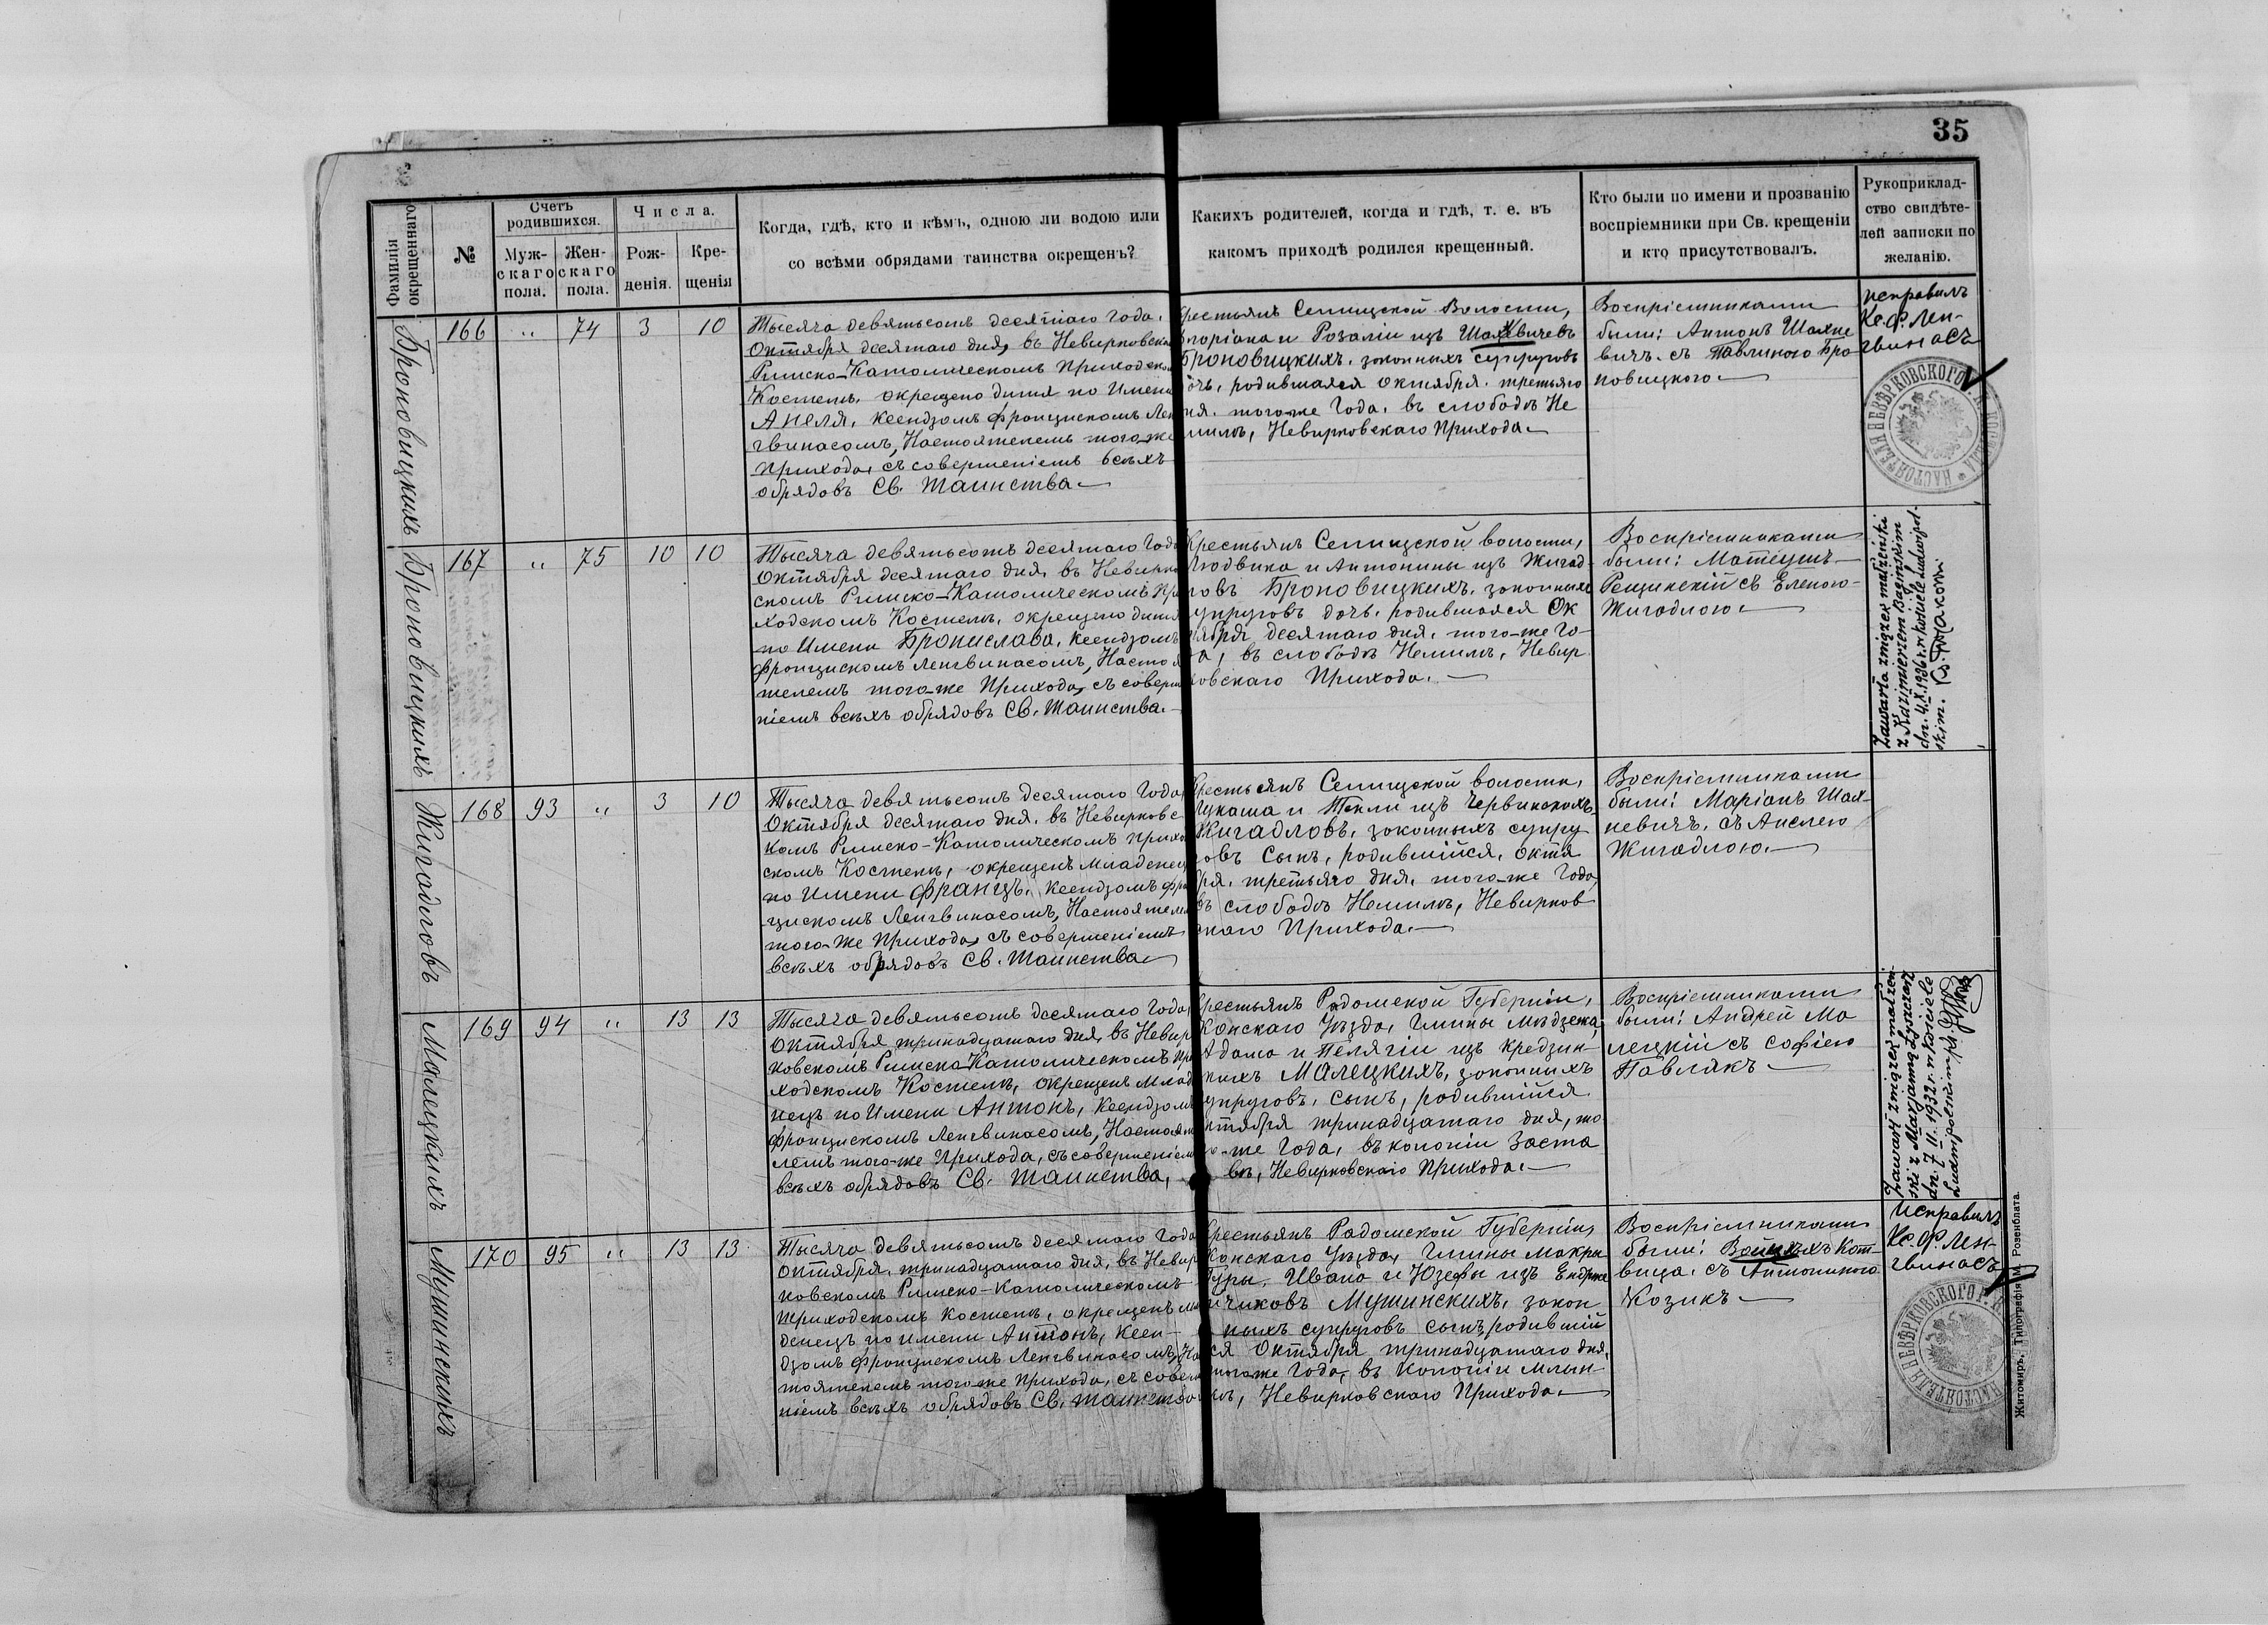 35
Фамилія
окрещеннаго
№
Счетъ
родившихся.
Муж-
скаго
пола.
Жен-
скаго
пола.
Числа.
Рож-
денія.
Кре-
щенія
Когда, гдѣ, кто и кѣмъ, одною ли водою или
со всѣми обрядами таинства окрещенъ?
Какихъ родителей, когда и гдѣ, т. е. въ
какомъ приходѣ родился крещенный.
Кто были по имени и прозванію
воспріемники при Св. крещеніи
и кто присутствовалъ.
Рукоприклад-
ство свидѣте-
лей записки по
желанію.
Броновицкихъ
166 " 74 3 10
Тысяча девятьсотъ десятаго года,
Октября десятаго дня, въ Невирковско
Римско-Католическомъ Приходско
Костелѣ, окрещено дитя по Имени
Анеля, Ксендзомъ Францискомъ Лен
гвинасомъ, Настоятелемъ того-же
Прихода, съ совершеніемъ всѣхъ
обрядовъ Св. Таинства.—
рестьянъ Селищской Волости,
лоріана и Розаліи изъ Шахневичевъ
Броновицкихъ, законныхъ супруговъ
очь, родившаяся Октября третьяго
ня, того-же Года, въ слободѣ Не
милѣ, Невирковскаго Прихода.—
Воспріемниками
были: Антонъ Шахне
вичъ съ Павлиною Бро
новицкою.—
исправилъ
Кс. Ф. Лен-
гвинасъ
НАСТОЯТЕЛЯ НЕВѢРКОВСКОГО
Броновицкихъ
167 " 75 10 10
Тысяча девятьсотъ десятаго Года
Октября десятаго дня, въ Невирко
скомъ Римско-Католическомъ При
ходскомъ Костелѣ, окрещено дитя
по Имени Бронислава, Ксендзомъ
Францискомъ Ленгвинасомъ, Настоя
телемъ того-же Прихода, съ соверше
ніемъ всѣхъ обрядовъ Св. Таинства.—
Крестьянъ Селищской волости,
Людвика и Антонины изъ Жигад-
ловъ Броновицкихъ, законныхъ
супруговъ дочь, родившаяся Ок
тября десятаго дня, того-же Го-
да, въ слободѣ Немилѣ, Невир
ковскаго Прихода.—
Воспріемниками
были: Матеушъ
Рещинскій съ Еленою
Жигадлою.—
Zawarła związek małżeński
z Kazimierzem Bagińskim
dn. 4.X.1936 r. w kościele Ludwipol-
skim.
Жигадловъ
168 93 " 3 10
Тысяча девятьсотъ десятаго Года,
Октября десятаго дня, въ Невирковс
комъ Римско-Католическомъ Прихо
скомъ Костелѣ, окрещенъ младенец
по Имени Францъ, Ксендзомъ Фра
цискомъ Ленгвинасомъ, Настоятеле
того-же Прихода, съ совершеніемъ
всѣхъ обрядовъ Св. Таинства.—
рестьянъ Селищской волости,
Лукаша и Текли изъ Червинскихъ
Жигадловъ, законныхъ супру
овъ сынъ, родившійся, Октя
бря, третьяго дня, того-же Года,
въ слободѣ Немилѣ, Невирков
скаго Прихода.—
Воспріемниками
были: Маріанъ Шах-
невичъ, съ Анелею
Жигадлою.—
Малецкихъ
169 94 " 13 13
Тысяча девятьсотъ десятаго Года,
Октября тринадцатаго дня, въ Невир
ковскомъ Римско-Католическомъ При
ходскомъ Костелѣ, окрещенъ Млад
нецъ по Имени Антонъ, Ксендзомъ
Францискомъ Ленгвинасомъ, Настоя
лемъ того-же Прихода, съ совершеніем
всѣхъ обрядовъ Св. Таинства,
рестьянъ Радомской Губерніи,
Конскаго Уѣзда, Гмины Мѣдзежа,
Адама и Пелягіи изъ Кредзин-
скихъ Малецкихъ, законныхъ
супруговъ, сынъ, родившійся
ктября тринадцатаго дня, то
о-же Года, въ колоніи Заста
вѣ, Невирковскаго Прихода.—
Воспріемниками
были: Андрей Ма
лецкій съ Софіею
Павлякъ.—
Zawarł związek małżeń-
ski z Marjanną
dn. 7 II. 1932 r. w kościele
Мушинскихъ
170 95 " 13 13
Тысяча девятьсотъ десятаго Года
Октября, тринадцатаго дня, въ Невир
ковскомъ Римско-Католическомъ
Приходскомъ Костелѣ, окрещенъ мла
денецъ по Имени Антонъ, Ксен-
дзомъ Францискомъ Ленгвинасомъ, На
тоятелемъ того-же Прихода, съ совер
ніемъ всѣхъ обрядовъ Св. Таинства
рестьянъ Радомской Губерніи,
Конскаго Уѣзда, Гмины Мокры
Гуры, Ивана и Юзефы изъ Ендрже
йчиковъ Мушинскихъ, закон
ныхъ супруговъ сынъ, родившій
ся Октября тринадцатаго дня,
того-же Года, въ Колоніи Млын-
кѣ, Невирковскаго Прихода.—
Воспріемниками
были: Войцѣхъ Кот-
вица, съ Антониною
Козикъ.—
исправилъ
Кс. Ф. Лен-
гвинасъ
НАСТОЯТЕЛЯ НЕВѢРКОВСКОГО
Житомиръ, Типографія М. Розенблата.